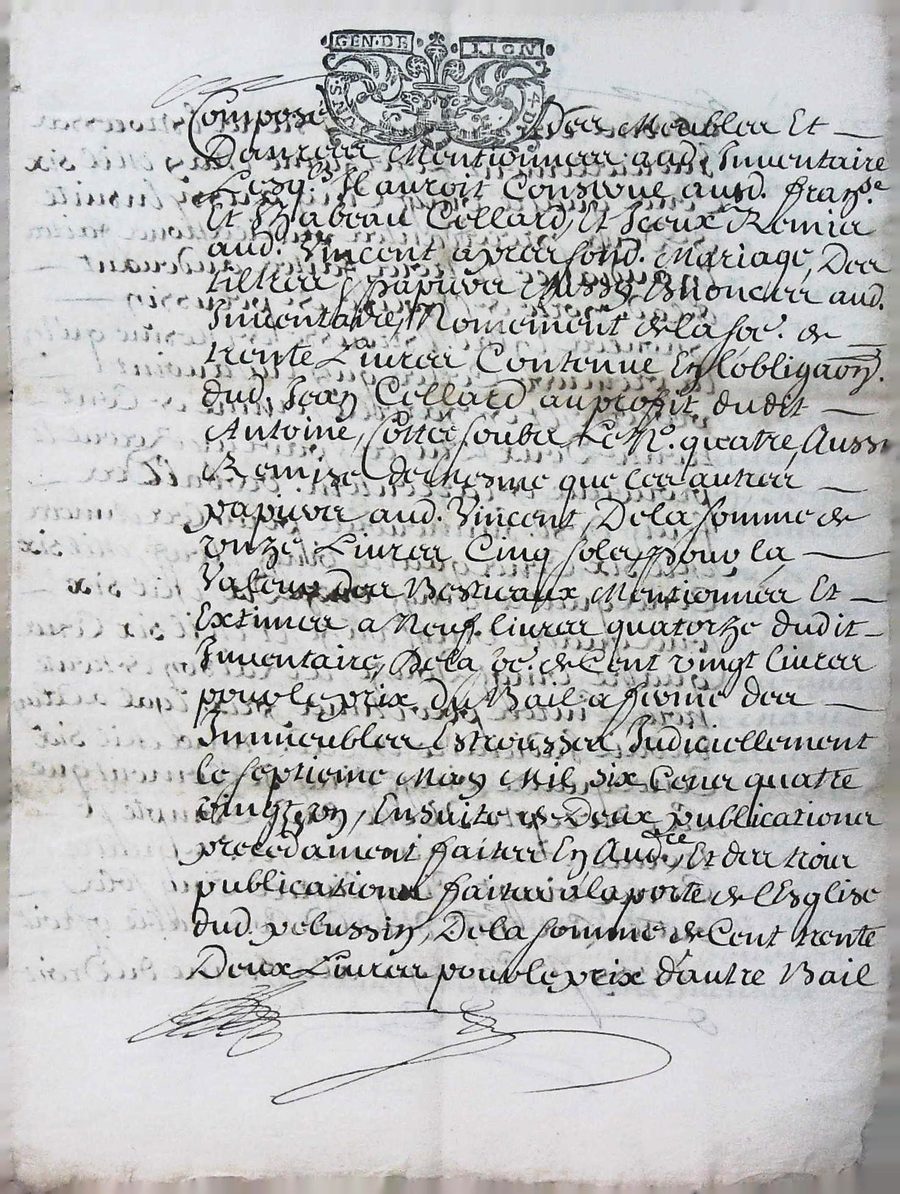 GEN·DE LION
Composé Des Meubles Et
Danrées Mentionnées aud. Inventaire
Lesq.ls Il auroit Convenue aud. fran.se
Et Izabeau Cellard, Et Iceux Remis
aud. Vincent apres sond. Mariage, Des
tiltres & papiers Aussy Enoncés aud.
Inventaire, Nomement de la so.e de
trente Livres Contenue En l'obliga͠on
dud. Jean Cellard au profit dudit
Antoine, Cottée soubz Le N.o quatre, Aussi
Remise de mesme que les autres
papiers aud. Vincent, De la somme de
onze Livres Cinq sols pour la
Valeur des Bestiaux Mentionnés Et
Extimés a Neuf livres quatorze dudit
Inventaire, De la so.e de Cent vingt livres
pour le prix Du Bail a ferme des
Immeubles Estroussés Judiciellement
le septieme May Mil six Cens quatre
vingt un, Ensuite de Deux publications
precedament faites En Aud.ce, Et des trois
publications faites a la porte de l'Esglise
dud. pelussin, De la somme de Cent trente
Deux Livres pour le prix d'autre Bail